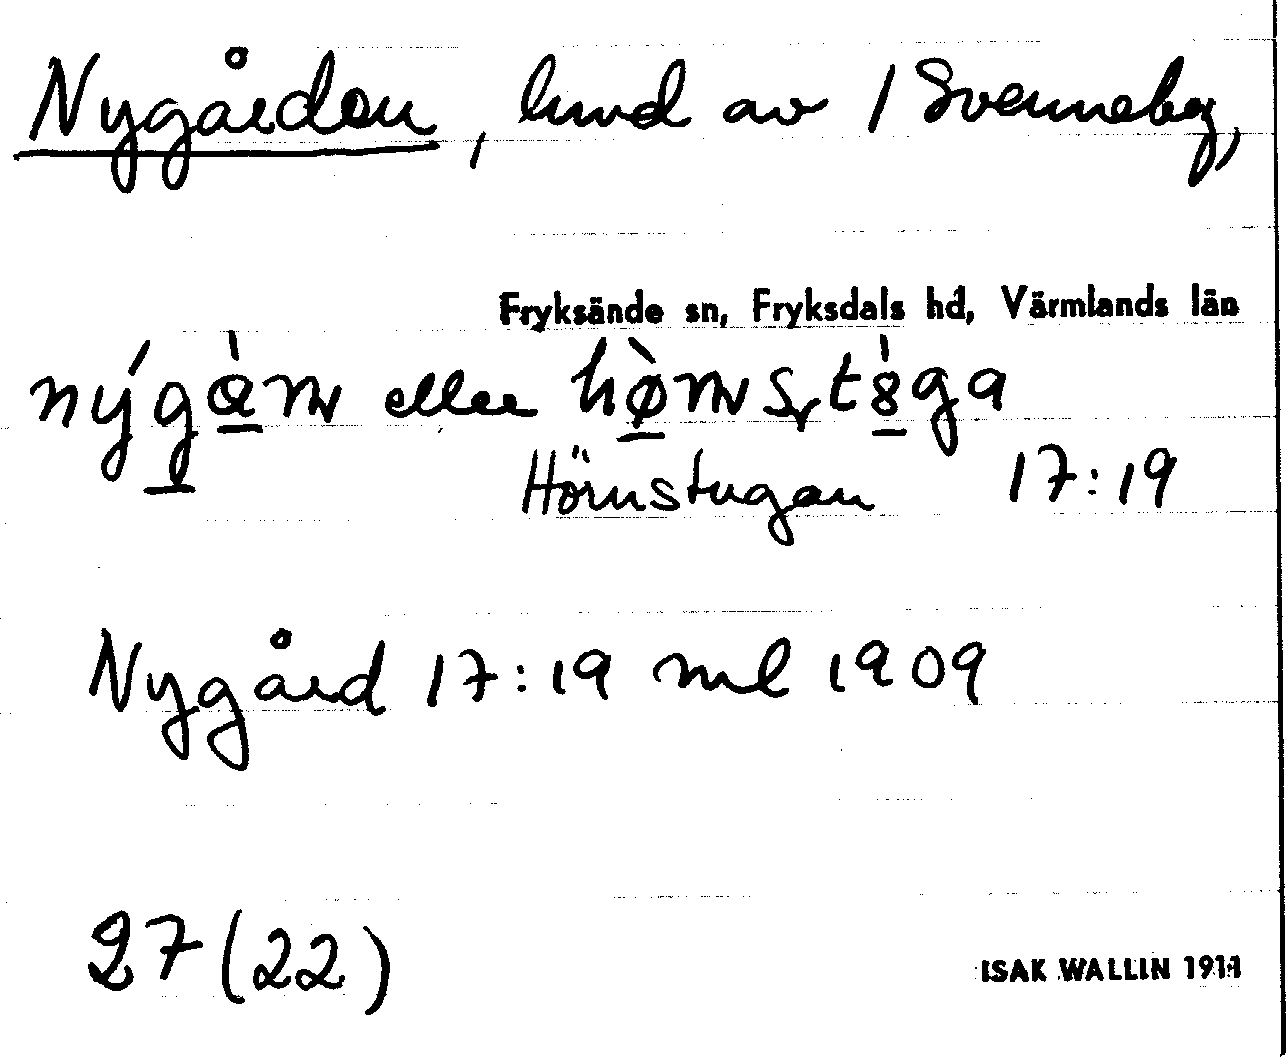 Nygården, hmd av 1 Svenneby,
Fryksände sn, Fryksdals hd, Värmlands län
eller
Hörnstugan 17:19
Nygård 17:19 ml 1909
27 (22)
ISAK WALLIN 1911